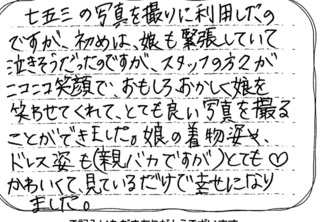 七五三の写真を撮りに利用したの
ですが、初めは、娘も緊張していて
泣きそうだったのですが、スタッフの方々が
ニコニコ笑顔で、おもしろおかしく娘を
笑わせてくれて、とても良い写真を撮る
ことができました。娘の着物姿や、
ドレス姿も(親バカですが)とても♡
かわいくて、見ているだけで幸せになり
ました。